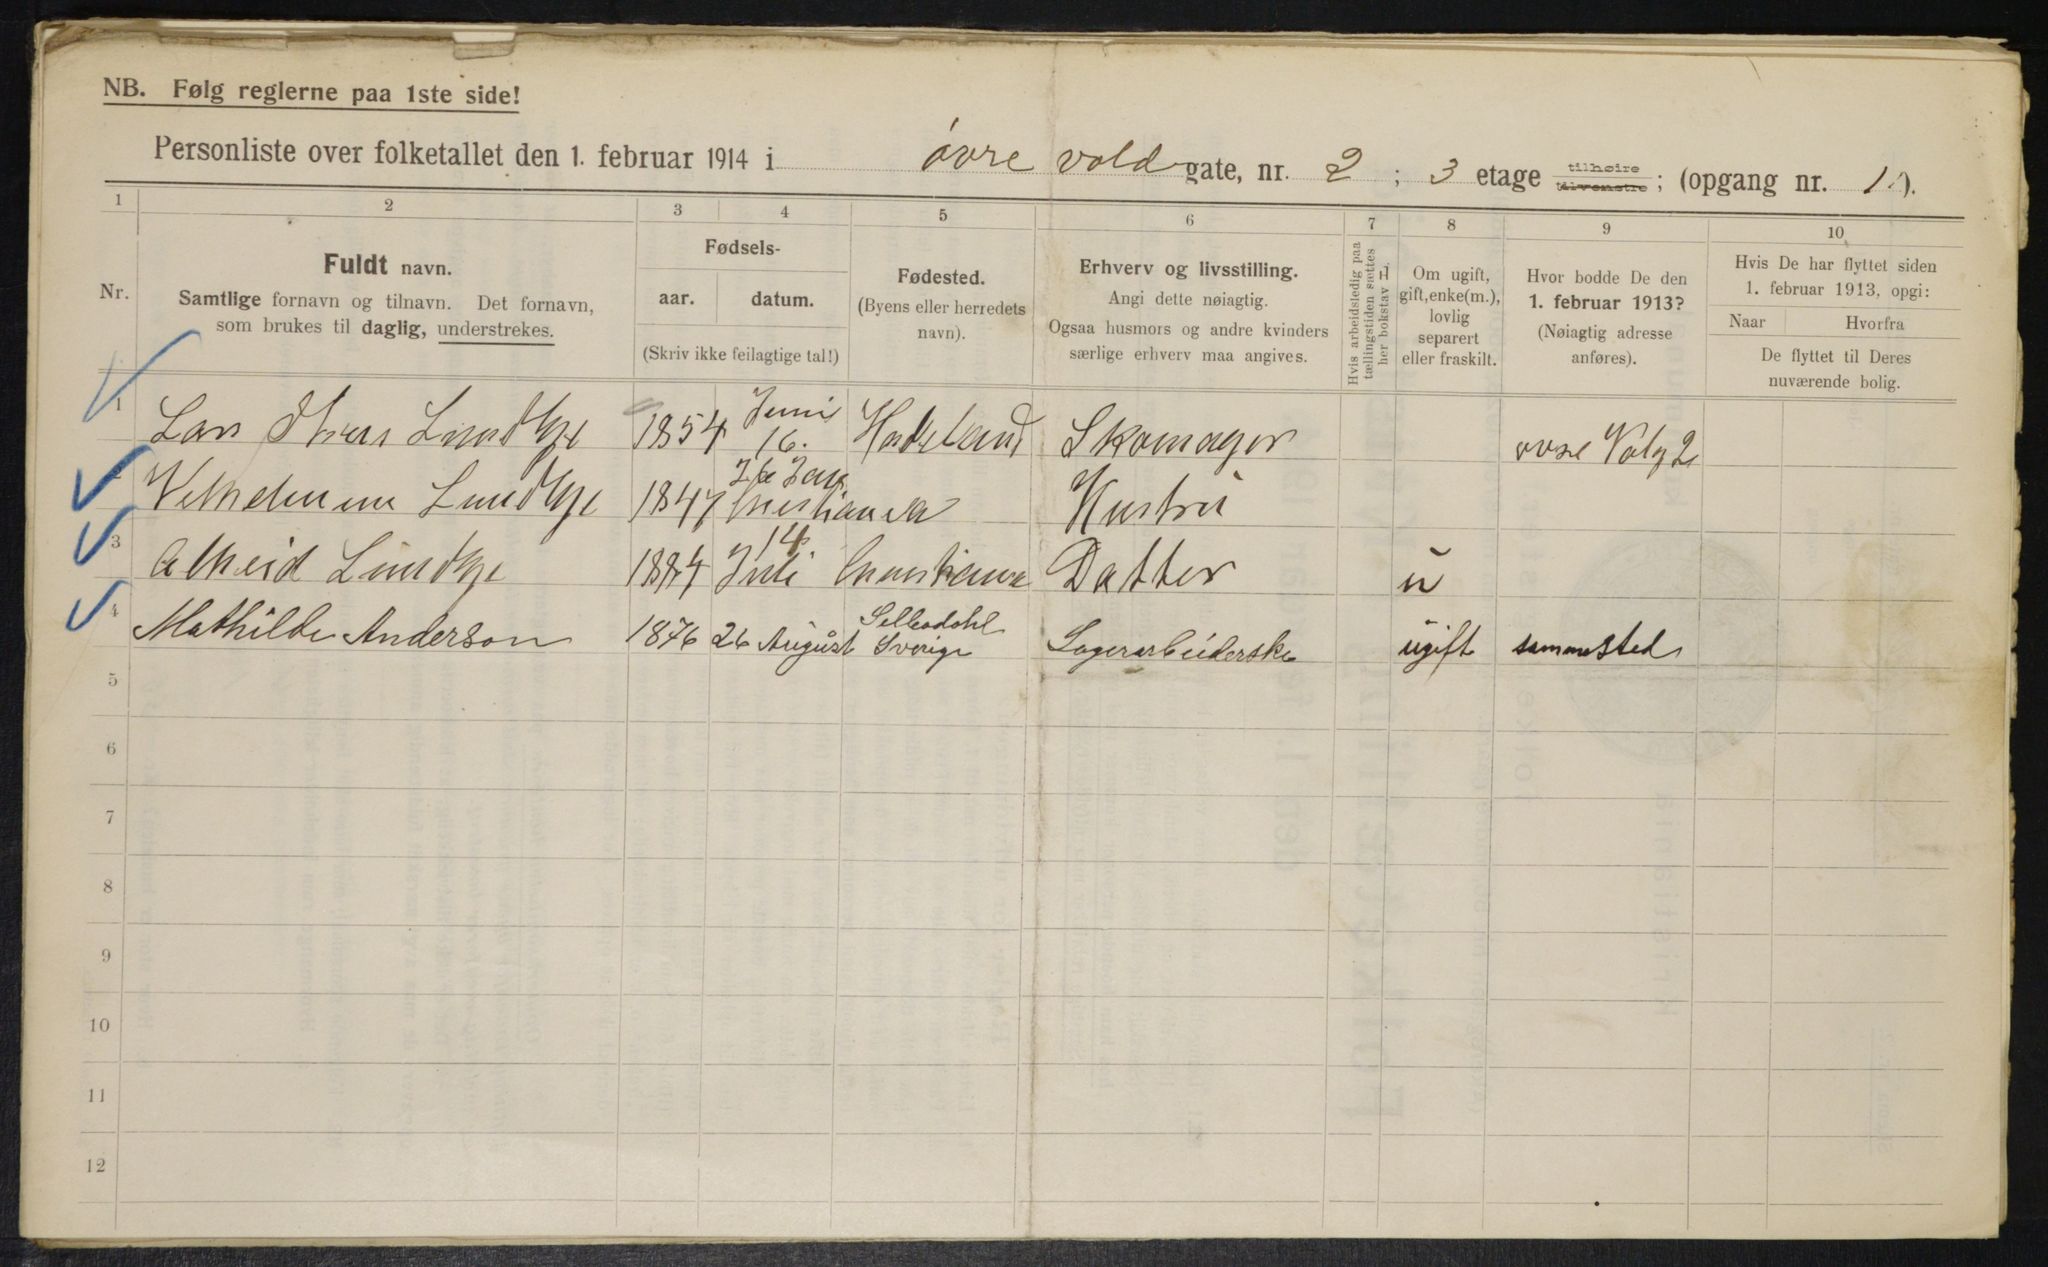 NB. Følg reglerne paa 1ste side!
Personliste over folketallet den 1. februar 1914 i øvre vold gate, nr. 2 ; 3 etage tilhøire tilvenstre ; (opgang nr. 1.).
1 2 3 4 5 6 7 8 9 10
Nr.
Fuldt navn.
Samtlige fornavn og tilnavn. Det fornavn,
som brukes til daglig, understrekes.
Fødsels-
aar. datum.
(Skriv ikke feilagtige tal!)
Fødested.
(Byens eller herredets
navn).
Erhverv og livsstilling.
Angi dette nøiagtig.
Ogsaa husmors og andre kvinders
særlige erhverv maa angives.
Hvis arbeidsledig paa
tællingstiden sættes
her bokstav H.
Om ugift,
gift, enke(m.),
lovlig
separert
eller fraskilt.
Hvor bodde De den
1. februar 1913?
(Nøiagtig adresse
anføres).
Hvis De har flyttet siden
1. februar 1913, opgi:
Naar Hvorfra
De flyttet til Deres
nuværende bolig.
1 Lars 1854 Juni 16. Hadeland Skomager øvre Volg 2
2 1847 Jan Christiania Hustru
3 1884 14 Juli Christiania Datter u
4 Mathilde Anderson 1876 26 August Sverige Lagerarbeiderske ugift sammested
5
6
7
8
9
10
11
12